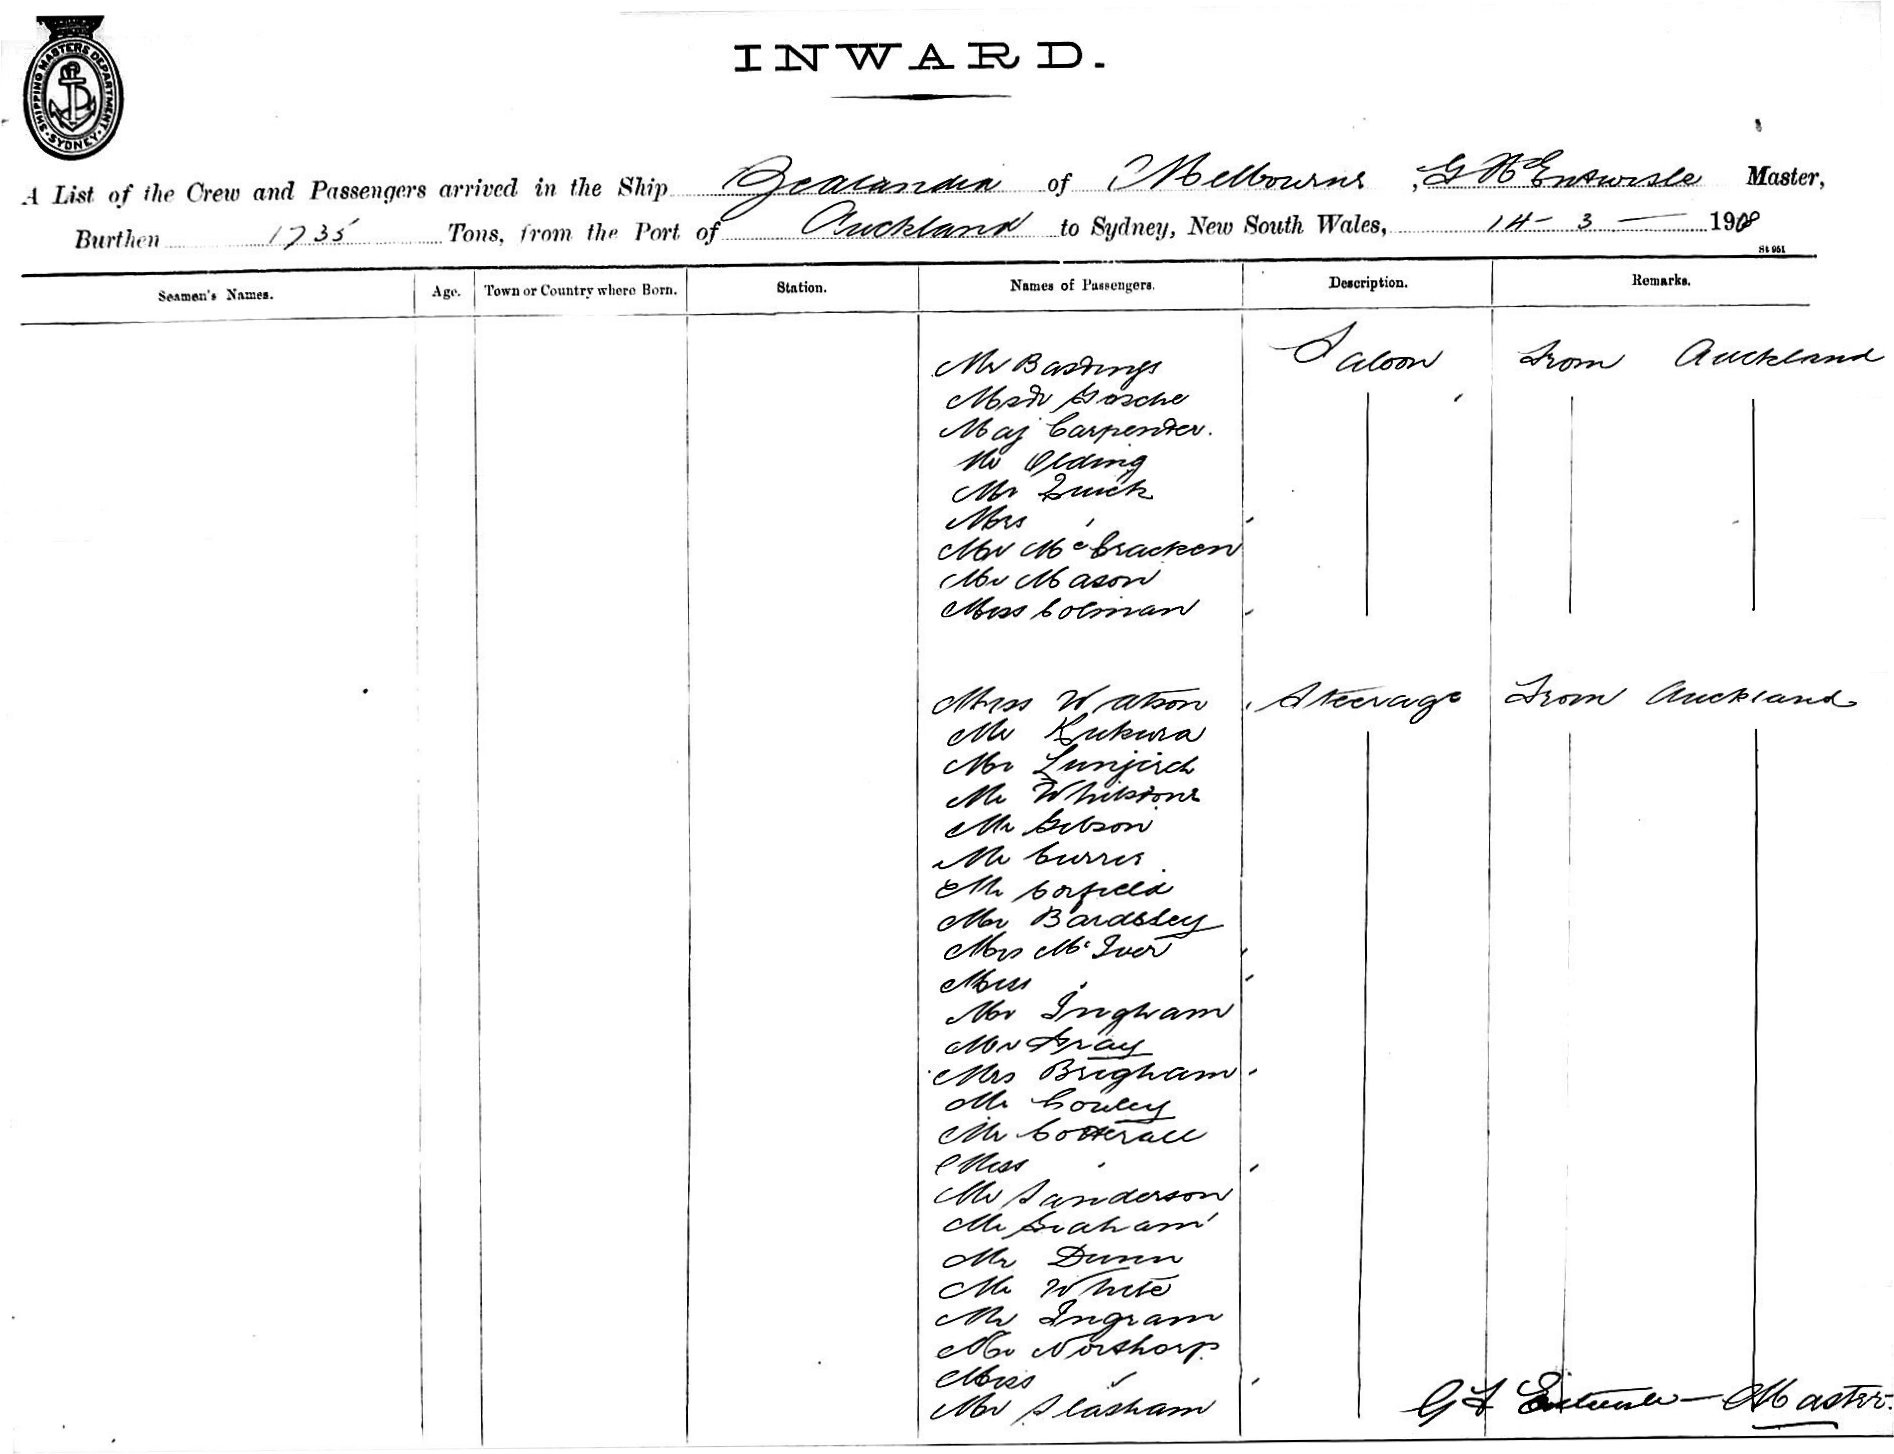 SHIPPING MASTERS DEPARTMENT
SYDNEY
INWARD.
A List of the Crew and Passengers arrived in the Ship Zealandia of Melbourne, G Entwisle Master,
Burthen 1735 Tons, from the Port of Auckland to Sydney, New South Wales, 14 - 3 - 1908
St 961
Seamen's Names. Age. Town or Country where Born. Station. Names of Passengers. Description. Remarks.
Mr Bastings Saloon From Auckland
Gosche
Maj Carpenter.
Mr Olding
Mr Quick
Mrs "
Mr McCracken
Mr Mason
Miss Colman
Miss Watson Steerage From Auckland
Mr Kukura
Mr
Mr Whitstone
Mr Gibson
Mr Currie
Mr Corfield
Mr Bardsley
Mrs McIver
Miss "
Mr Ingham
Mr Gray
Mrs Brigham
Mr Couley
Mr Cotterall
Miss "
Mr Sanderson
Mr Graham
Mr Dunn
Mr White
Mr Ingram
Mr Northorp
Miss "
Mr Slasham
G Entwisle - Master.